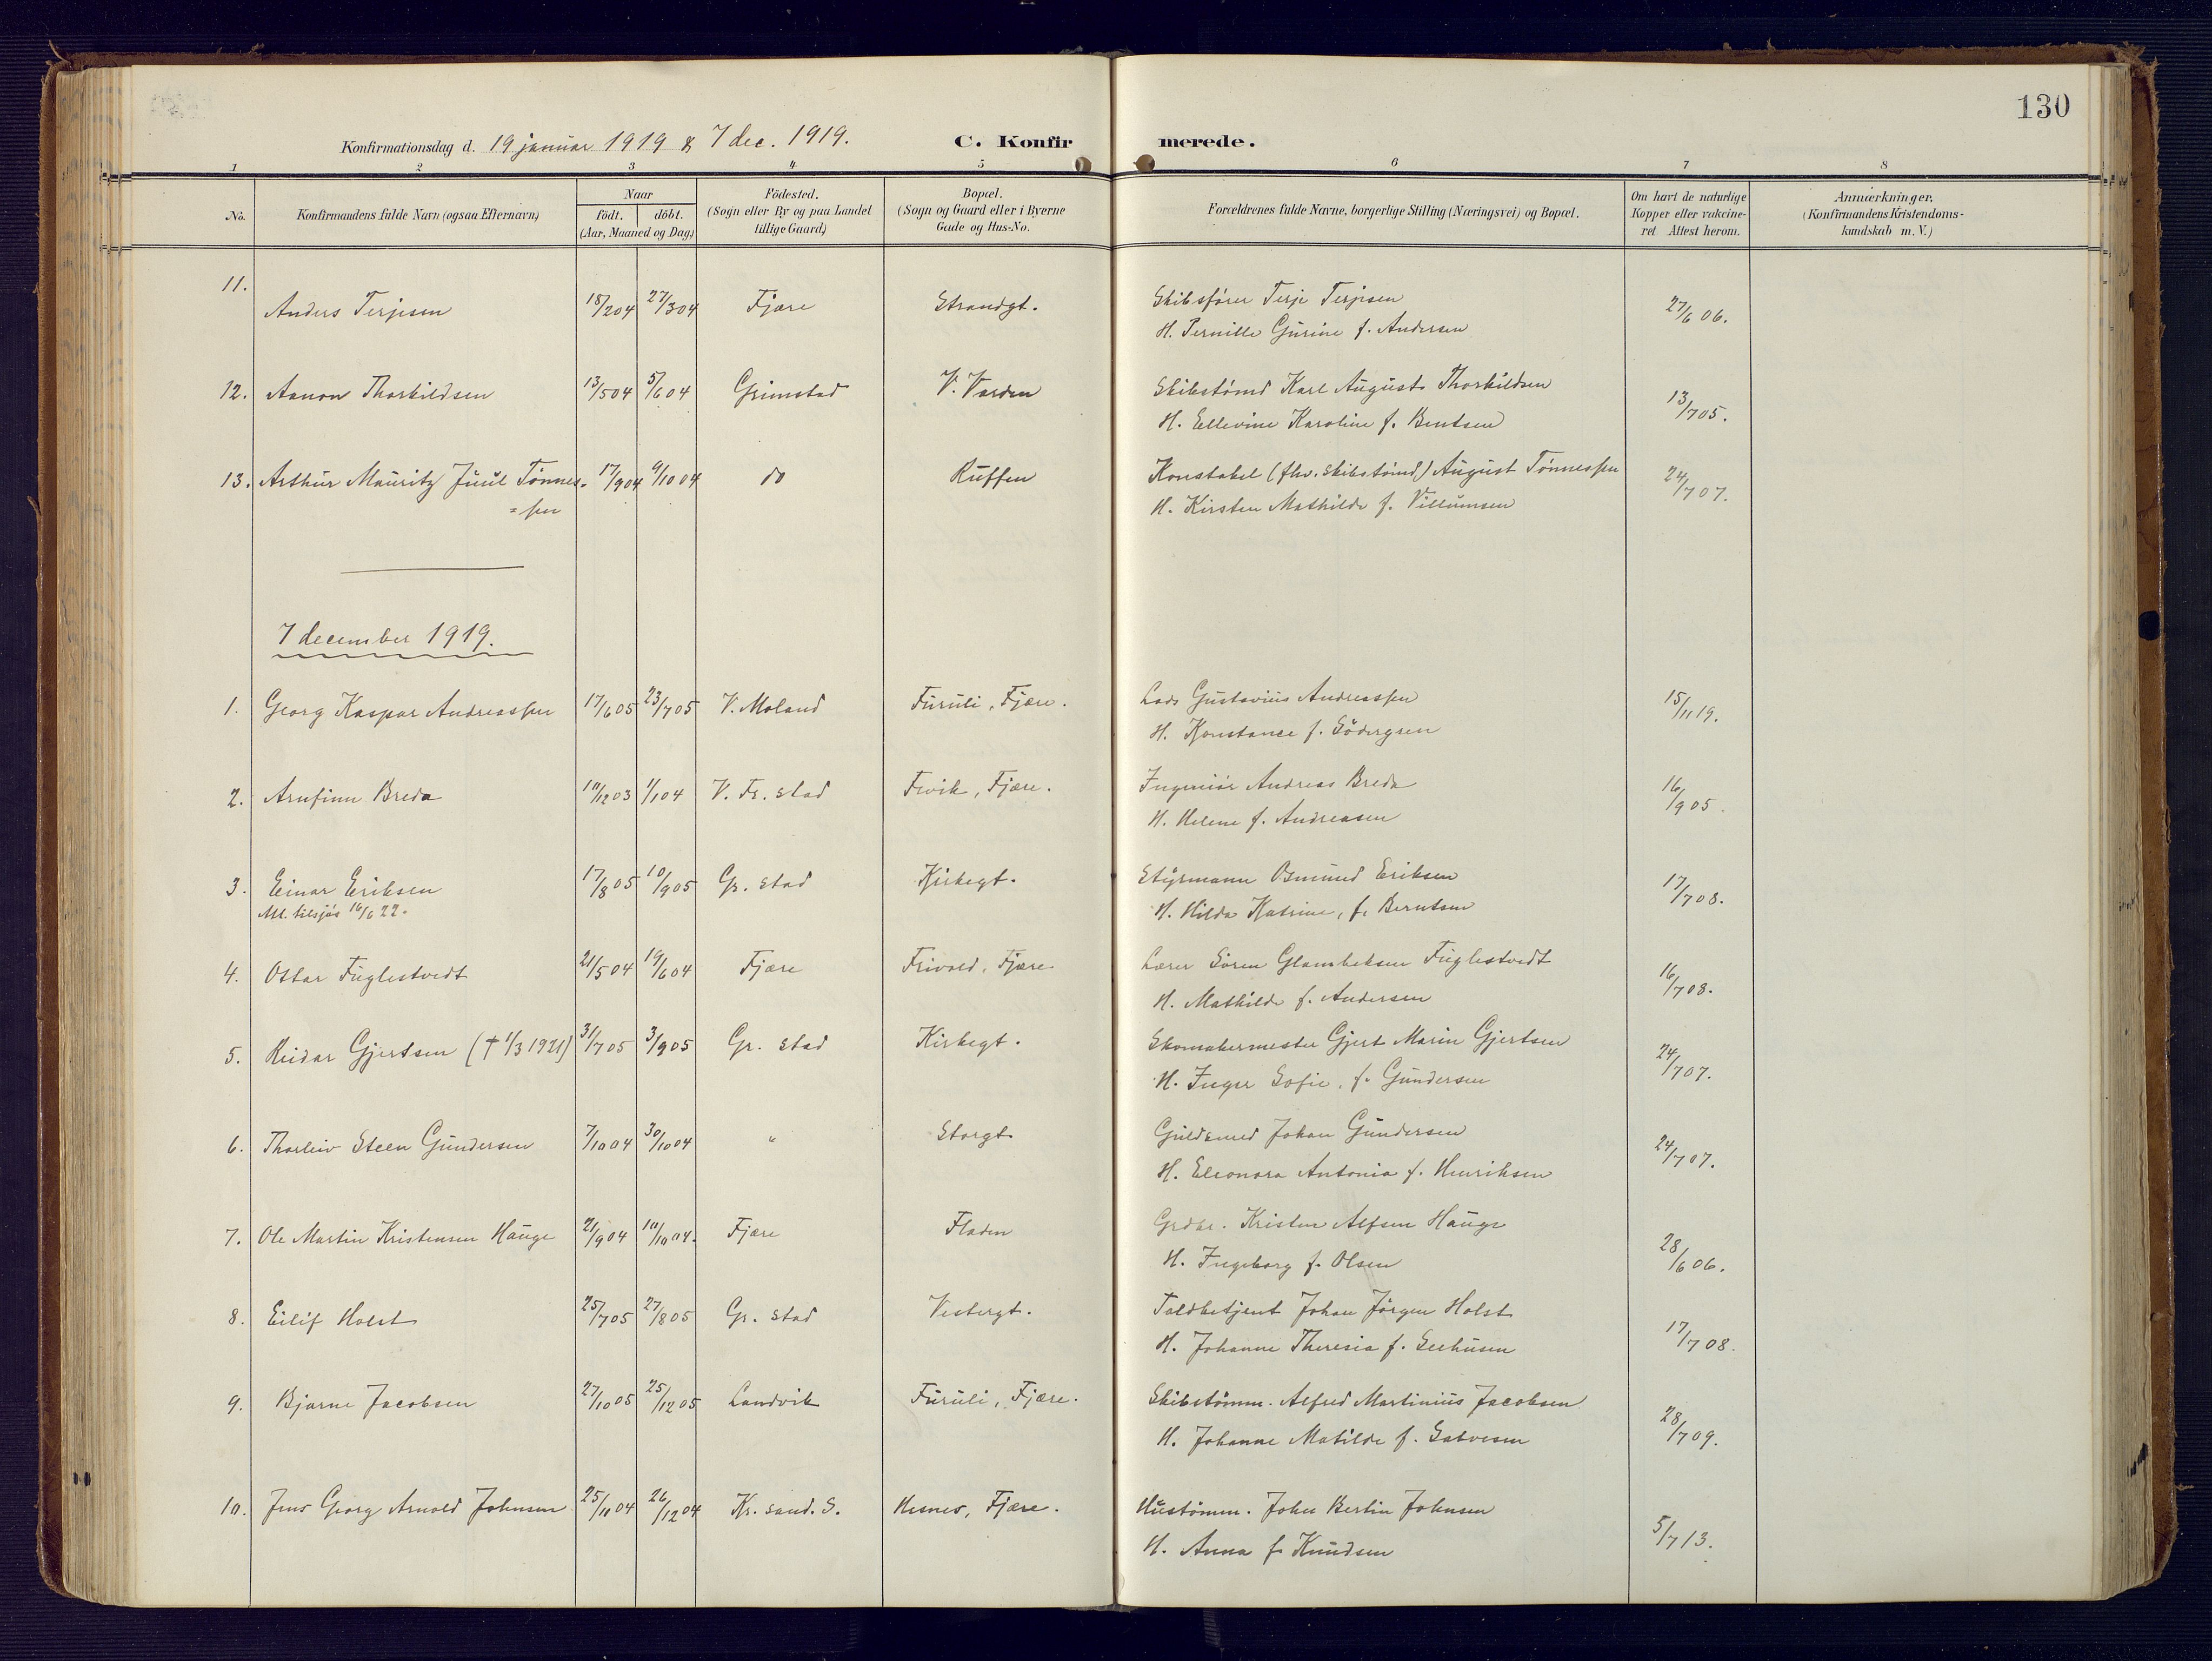 130
Konfirmationsdag d. 19 januar 1919 & 7 dec. 1919. C. Konfirmerede.
1 2 3 4 5 6 7 8
No. Konfirmandens fulde Navn (ogsaa Efternavn) Naar födt. döbt. (Aar, Maaned og Dag) Födested. (Sogn eller By og paa Landet tillige Gaard) Bopæl. (Sogn og Gaard eller i Byerne Gade og Hus-No. Forældrenes fulde Navne, borgerlige Stilling (Næringsvei) og Bopæl. Om havt de naturlige Kopper eller vakcineret Attest herom. Anmærkninger, (Konfirmandens Kristendomskundskab m. V.)
11. Anders Terjesen 18/2 04 27/3 04 Fjære Strandgt. Skibsfører Terje Terjesen 27/6 06.
H. Pernille Gurine f. Andersen
12. Aanon Thorkildsen 13/5 04 5/6 04 Grimstad V. Varden Skibstömd Karl August Thorkildsen 13/7 05.
H. Ellevine Karoline f. Bentsen
13. Arthur Mauritz Juul Tönnes- 17/9 04 9/10 04 do Ruffen Konstabel (fhv. skibstömd) August Tönnessen 24/7 07.
=sen H. Kirsten Mathilde f. Villumsen
7 december 1919.
1. Georg Kaspar Andreassen 17/6 05 23/7 05 V. Moland Furuli, Fjære. Lods Gustavius Andreassen 15/11 19.
H. Konstance f. Södergren
2. Arnfinn Breda 10/12 03 1/1 04 V. Fr. stad Fevik, Fjære. Ingeniör Andreas Breda 16/9 05.
H. Helene f. Andreasen
3. Einar Eriksen 17/8 05 10/9 05 Gr. stad Kirkegt. Styrmann Osmund Eriksen 17/7 08.
Att. tilsjös 16/6 22. H. Hilda Katrine, f. Berntsen
4. Ottar Fuglestvedt 21/5 04 19/6 04 Fjære Frivold, Fjære Lærer Sören Glambeksen Fuglestvedt 16/7 08.
H. Mathilde f. Andersen
5. Reidar Gjertsen († 1/3 1921) 31/7 05 3/9 05 Gr. stad Kirkegt. Skomakermester Gjert Marin Gjertsen 24/7 07.
H. Inger Sofie, f. Gundersen
6. Thorleiv Steen Gundersen 7/10 04 30/10 04 " Storgt. Guldsmed Johan Gundersen 24/7 07.
H. Eleonora Antonia f. Henriksen
7. Ole Martin Kristensen Hauge 21/9 04 10/10 04. Fjære Fladen Grdbr. Kristen Alfsen Hauge 28/6 06.
H. Ingeborg f. Olsen
8. Eilif Holst 25/7 05 27/8 05 Gr. stad Vestergt. Toldbetjent Johan Jörgen Holst 17/7 08.
H. Johanne Theresia f. Seehusen
9. Bjarne Jacobsen 27/10 05 25/12 05 Landvik Furuli, Fjære. Skibstömm. Alfred Martinius Jacobsen 28/7 09.
H. Johanne Matilde f. Salvesen
10. Jens Georg Arnold Johnsen 25/11 04 26/12 04 Kr. sand. S. Hesnes, Fjære. Hustömm. John Bertin Johnsen 5/7 13.
H. Anna f. Knudsen